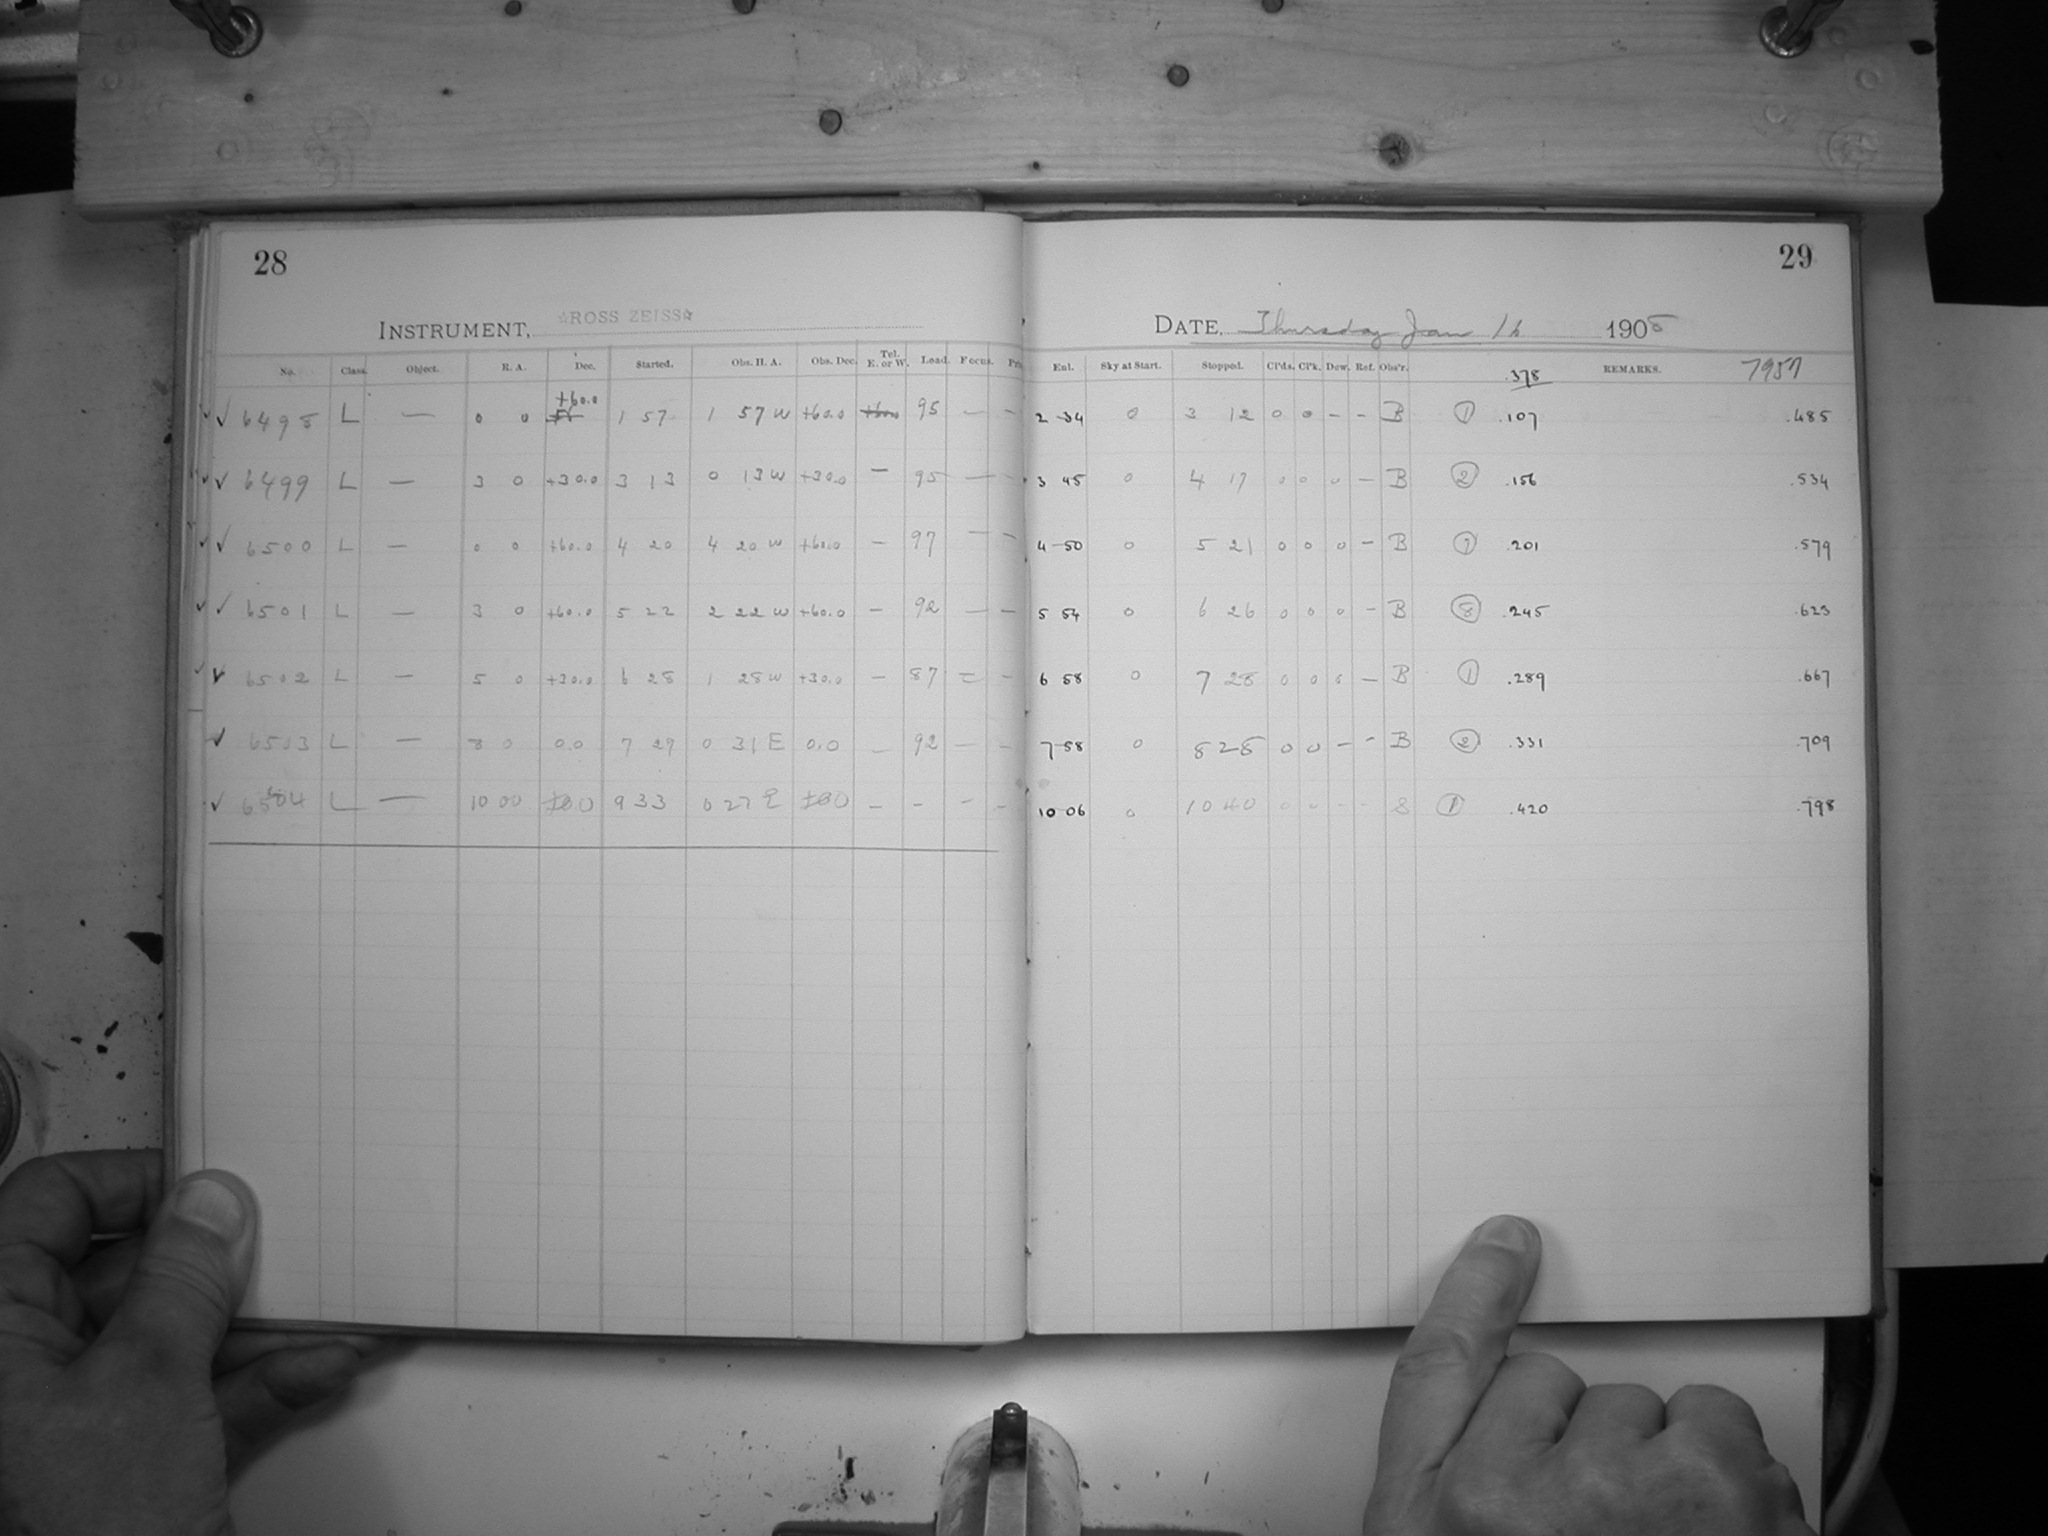 28
INSTRUMENT, ☆ROSS ZEISS☆
No. Class. Object. R. A. Dec. Started. Obs. H. A. Obs. Dec. Tel. E. or W. Load. Focus.
+60.0
6498 L — 0 0 1 57 1 57 W +60.0 +60.0 95 — —
6499 L — 3 0 +30.0 3 13 0 13 W +30.0 — 95 — —
6500 L — 0 0 +60.0 4 20 4 20 W +60.0 — 97 — —
6501 L — 3 0 +60.0 5 22 2 22 W +60.0 — 92 — —
6502 L — 5 0 +30.0 6 28 1 28 W +30.0 — 87 — —
6503 L — 8 0 0.0 7 29 0 31 E 0.0 — 92 — —
6504 L — 10 00 9 33 0 27 E — — — —
29
DATE, Thursday Jan 16 1908
Enl. Sky at Start. Stopped. Cl'ds. Cl'k. Dew. Ref. Obs'r. .378 REMARKS. 7957
2 34 0 3 12 0 0 — — B 1 .107 .485
3 45 0 4 17 0 0 0 — B 2 .156 .534
4 50 0 5 21 0 0 0 — B 7 .201 .579
5 54 0 6 26 0 0 0 — B 8 .245 .623
6 58 0 7 28 0 0 0 — B 1 .289 .667
7 58 0 8 28 0 0 — — B 2 .331 .709
10 06 0 10 40 0 0 — — S 1 .420 .798